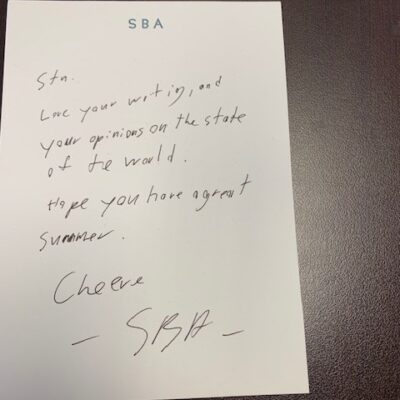 SBA
Stn.
Love your writing, and
your opinions on the state
of the world.
Hope you have a great
summer.
Cheers
- SBA -